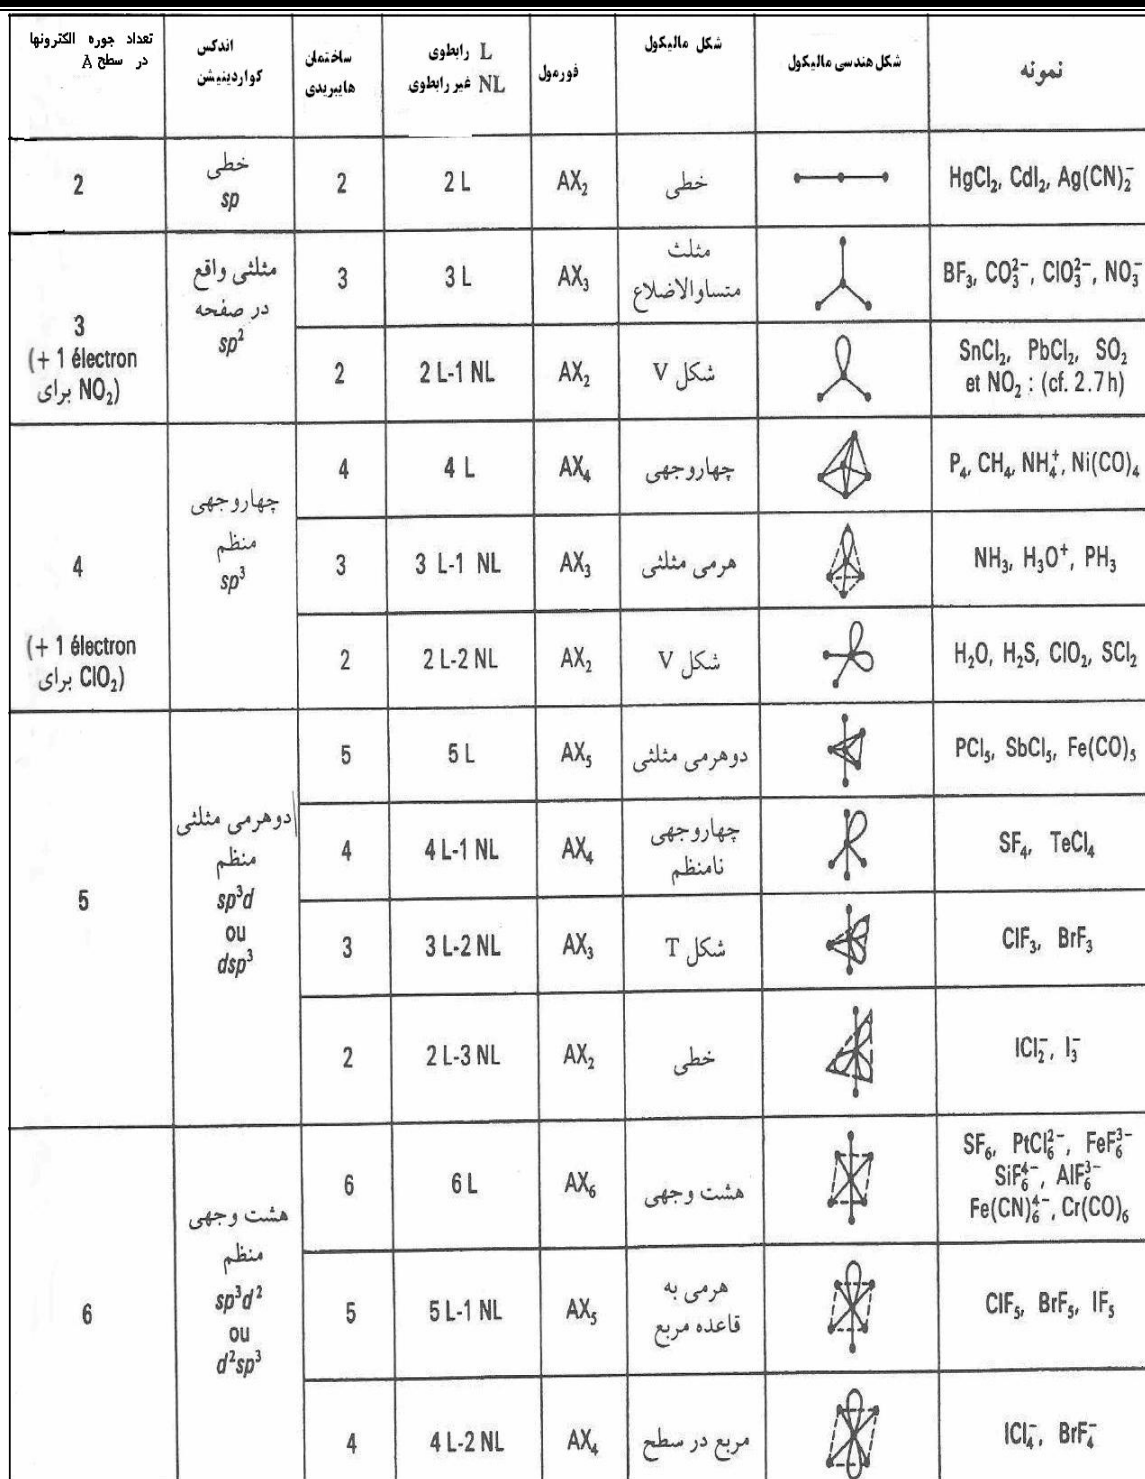 تعداد جوره الکترونها
در سطح A
اندکس
کواردینیشن
ساختمان
هایبریدی
L رابطوی
NL غیر رابطوی
فورمول
شکل مالیکول
شکل هندسی مالیکول
نمونه
2
خطی
sp
2
2 L
AX₂
خطی
HgCl₂, CdI₂, Ag(CN)₂⁻
3
(+ 1 électron
برای NO₂)
مثلثی واقع
در صفحه
sp²
3
3 L
AX₃
مثلث
متساوالاضلاع
BF₃, CO₃²⁻, ClO₃²⁻, NO₃⁻
2
2 L-1 NL
AX₂
شکل V
SnCl₂, PbCl₂, SO₂
et NO₂ : (cf. 2.7h)
4
(+ 1 électron
برای ClO₂)
چهاروجهی
منظم
sp³
4
4 L
AX₄
چهاروجهی
P₄, CH₄, NH₄⁺, Ni(CO)₄
3
3 L-1 NL
AX₃
هرمی مثلثی
NH₃, H₃O⁺, PH₃
2
2 L-2 NL
AX₂
شکل V
H₂O, H₂S, ClO₂, SCl₂
5
دوهرمی مثلثی
منظم
sp³d
ou
dsp³
5
5 L
AX₅
دوهرمی مثلثی
PCl₅, SbCl₅, Fe(CO)₅
4
4 L-1 NL
AX₄
چهاروجهی
نامنظم
SF₄, TeCl₄
3
3 L-2 NL
AX₃
شکل T
ClF₃, BrF₃
2
2 L-3 NL
AX₂
خطی
ICl₂⁻, I₃⁻
6
هشت وجهی
منظم
sp³d²
ou
d²sp³
6
6 L
AX₆
هشت وجهی
SF₆, PtCl₆²⁻, FeF₆³⁻
SiF₆⁴⁻, AlF₆³⁻
Fe(CN)₆⁴⁻, Cr(CO)₆
5
5 L-1 NL
AX₅
هرمی به
قاعده مربع
ClF₅, BrF₅, IF₅
4
4 L-2 NL
AX₄
مربع در سطح
ICl₄⁻, BrF₄⁻